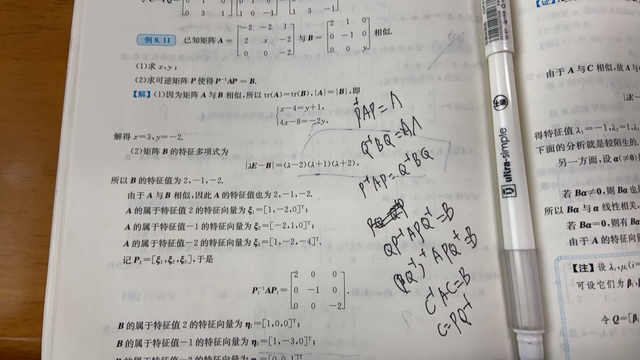 例8.11 已知矩阵 A = [-2 -2 1; 2 x -2; 0 0 -2] 与 B = [2 1 0; 0 -1 0; 0 0 y] 相似.
(1)求 x,y;
(2)求可逆矩阵 P 使得 P⁻¹AP = B.
【解】(1)因为矩阵 A 与 B 相似,所以 tr(A)=tr(B),|A|=|B|,即
{x-4=y+1,
4x-8=-2y,
解得 x=3,y=-2.
(2)矩阵 B 的特征多项式为
|λE-B|=(λ-2)(λ+1)(λ+2),
所以 B 的特征值为 2,-1,-2.
由于 A 与 B 相似,因此 A 的特征值也为 2,-1,-2.
A 的属于特征值 2 的特征向量为 ξ₁=[1,-2,0]ᵀ;
A 的属于特征值 -1 的特征向量为 ξ₂=[-2,1,0]ᵀ;
A 的属于特征值 -2 的特征向量为 ξ₃=[1,-2,-4]ᵀ.
记 P₁=[ξ₁,ξ₂,ξ₃],于是
P₁⁻¹AP₁ = [2 0 0; 0 -1 0; 0 0 -2].
B 的属于特征值 2 的特征向量为 η₁=[1,0,0]ᵀ;
B 的属于特征值 -1 的特征向量为 η₂=[1,-3,0]ᵀ;
P⁻¹AP=Λ
Q⁻¹BQ=Λ
P⁻¹AP=Q⁻¹BQ
QP⁻¹APQ⁻¹=B
(PQ⁻¹)⁻¹APQ⁻¹=B
C⁻¹AC=B
C=PQ⁻¹
ultra·simple
由于 A 与 C 相似,故 A 与
得特征值 λ₁=-1,λ₂=1,λ
下面的分析就是较陌生的.
另一方面,设 α(≠0)
若 Bα≠0,则 Bα 也
所以 Bα 与 α 线性相关,
若 Bα=0,则有 Bα
由于 A 的特征向
【注】设 λᵢ,μᵢ(i=
可设它们为 β₁,
令 Q=[β₁